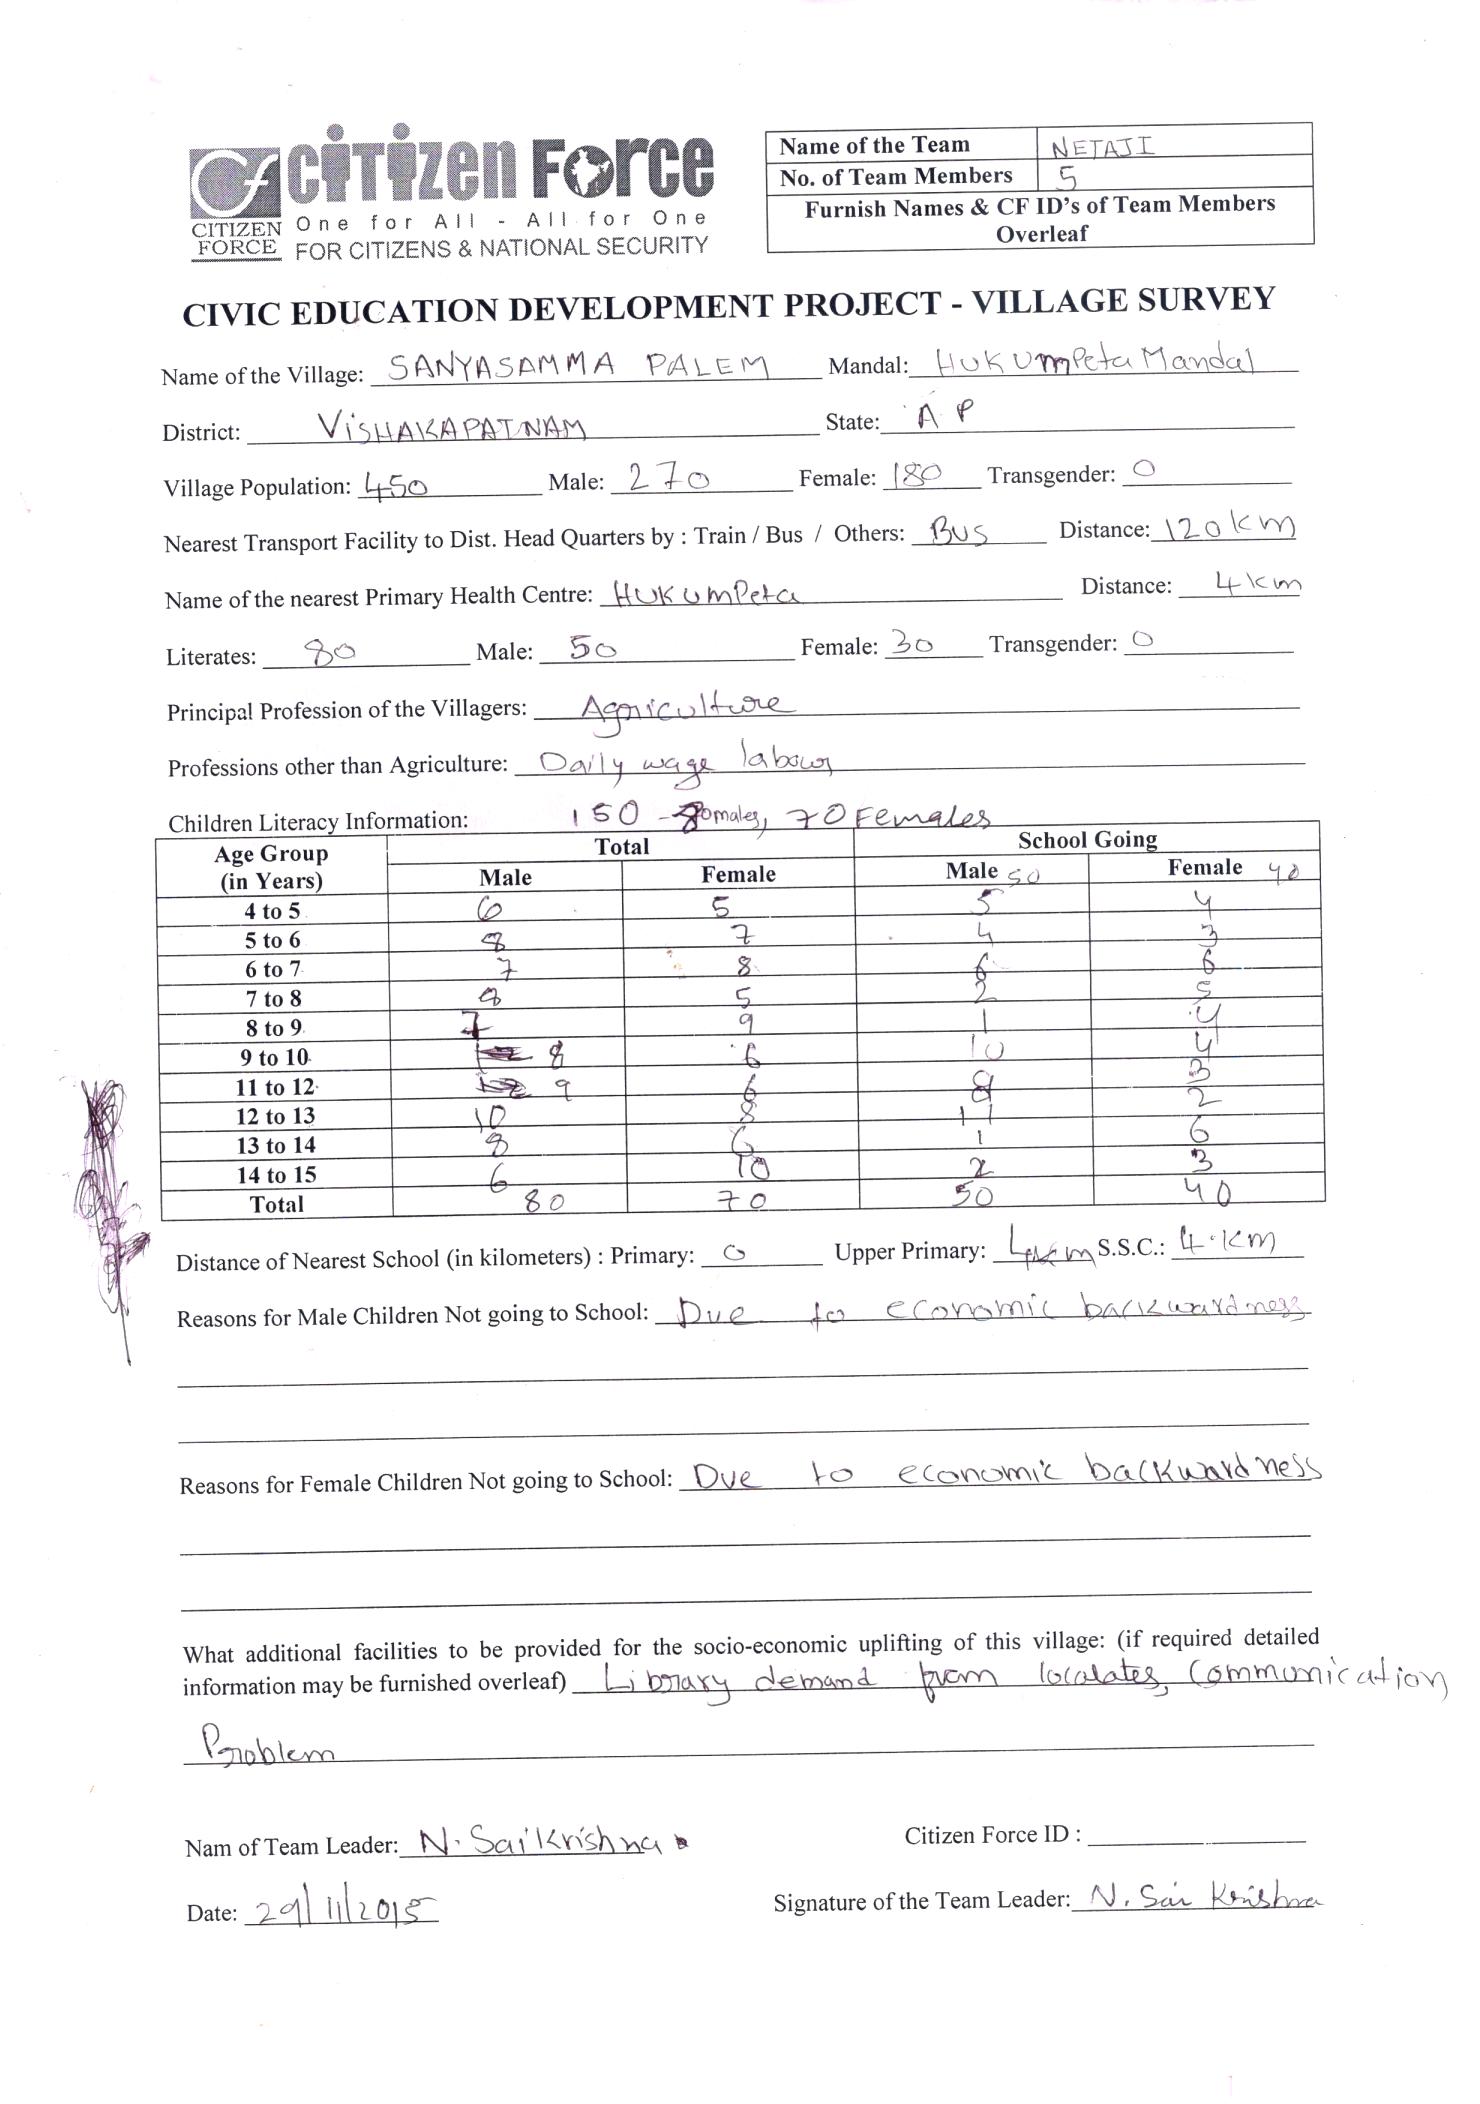 Cf CiTizen Force
One for All - All for One
CITIZEN FORCE
FOR CITIZENS & NATIONAL SECURITY
Name of the Team NETAJI
No. of Team Members 5
Furnish Names & CF ID's of Team Members
Overleaf
CIVIC EDUCATION DEVELOPMENT PROJECT - VILLAGE SURVEY
Name of the Village: SANYASAMMA PALEM Mandal: HUKUMPeta Mandal
District: ViSHAKAPATNAM State: A P
Village Population: 450 Male: 270 Female: 180 Transgender: 0
Nearest Transport Facility to Dist. Head Quarters by : Train / Bus / Others: Bus Distance: 120 km
Name of the nearest Primary Health Centre: HUKUMPeta Distance: 4 km
Literates: 80 Male: 50 Female: 30 Transgender: 0
Principal Profession of the Villagers: Agriculture
Professions other than Agriculture: Daily wage labour
Children Literacy Information: 150 - 80 males, 70 Females
Age Group Total School Going
(in Years) Male Female Male 50 Female 40
4 to 5 6 5 5 4
5 to 6 8 7 4 3
6 to 7 7 8 6 6
7 to 8 8 5 2 5
8 to 9 7 9 1 4
9 to 10 8 6 10 4
11 to 12 9 6 3
12 to 13 10 8 2
13 to 14 8 6 1 6
14 to 15 6 10 2 3
Total 80 70 50 40
Distance of Nearest School (in kilometers) : Primary: 0 Upper Primary: 4km S.S.C.: 4.Km
Reasons for Male Children Not going to School: Due to economic backwardness
Reasons for Female Children Not going to School: Due to economic backwardness
What additional facilities to be provided for the socio-economic uplifting of this village: (if required detailed
information may be furnished overleaf) Library demand from localates, Communication
Problem
Nam of Team Leader: N. Sai Krishna Citizen Force ID :
Date: 29/11/2015 Signature of the Team Leader: N. Sai Krishna